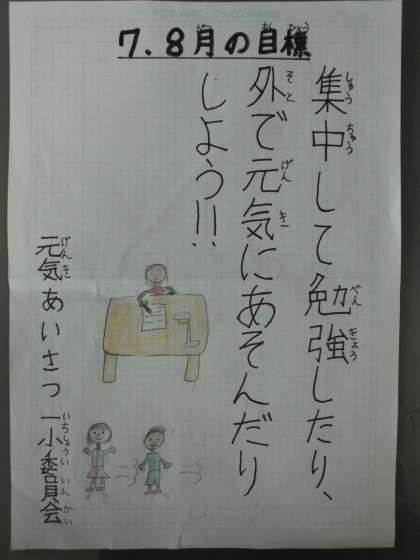 7.8月の目標
集中して勉強したり、
外で元気にあそんだり
しよう!!
元気あいさつ一小委員会